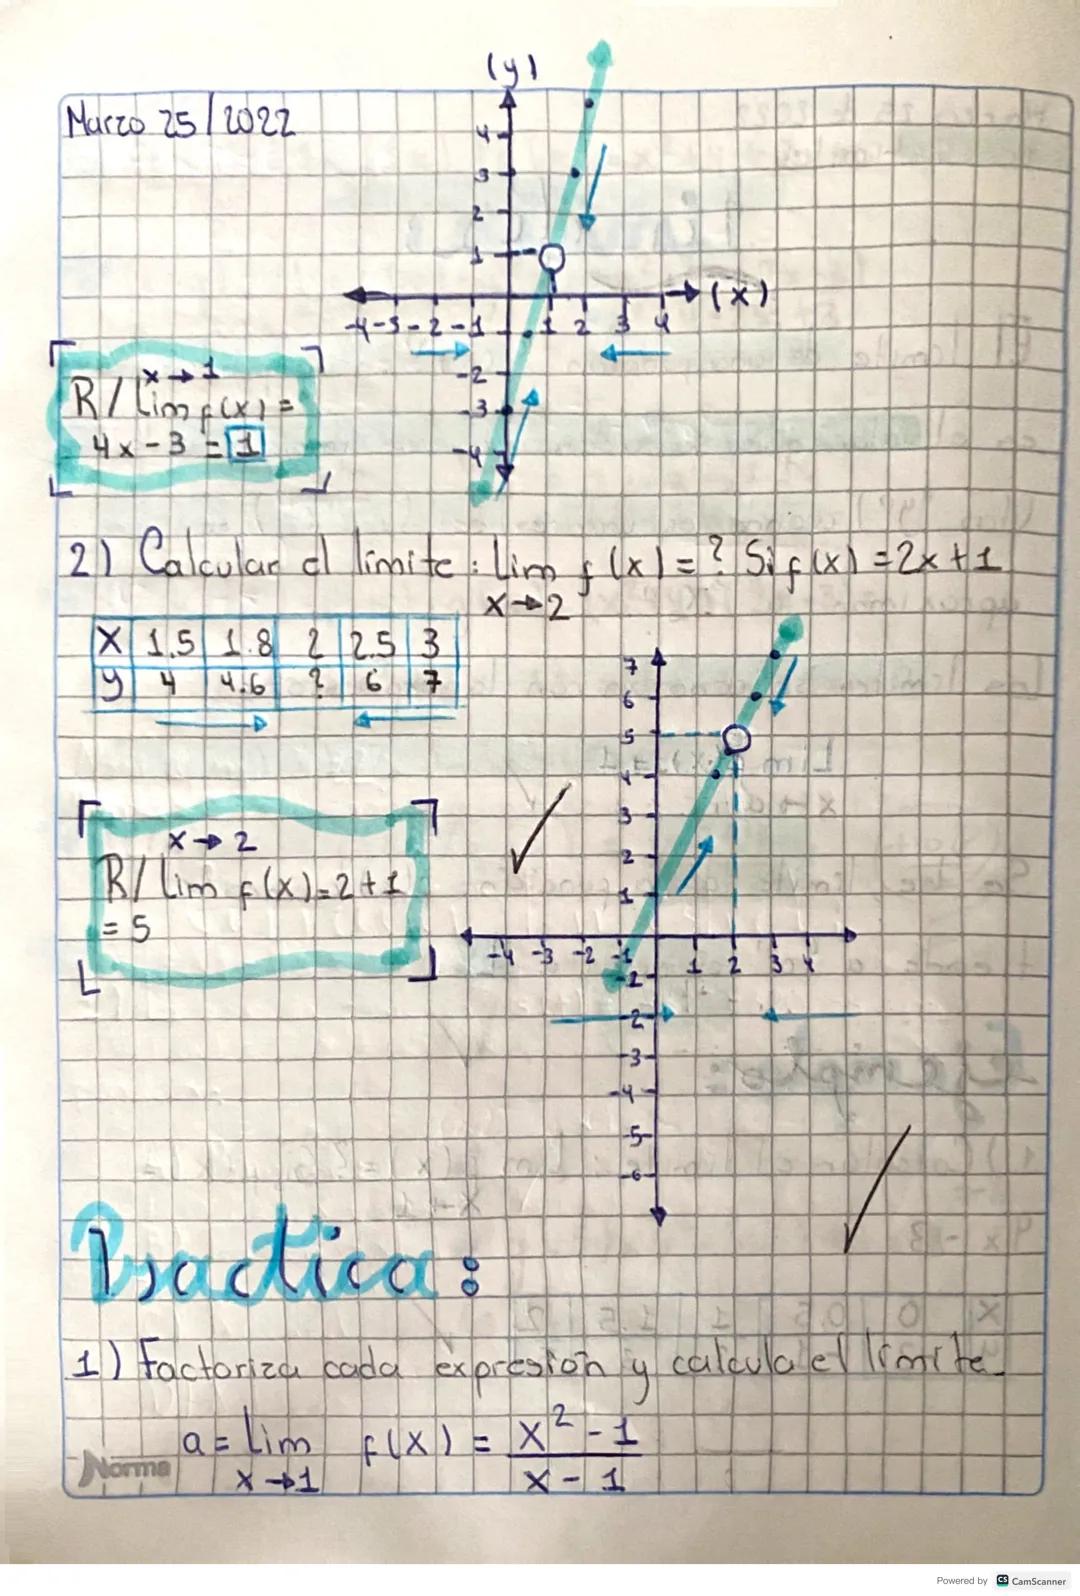 (y)
Marzo 25/2022
4
3
2
1
(x)
-4 -3 -2 -1 1 2 3 4
-2
-3
-4
x→1
R/ Lim f(x) =
4x-3 = 1
2) Calcular el limite: Lim f(x) = ? Si f(x) = 2x+1
x→2
X 1.5 1.8 2 2.5 3
y 4 4.6 ? 6 7
7
6
5
4
3
2
1
-4 -3 -2 -1 1 2 3 4
-1
-2
-3
-4
-5
-6
x→2
R/ Lim f(x)=2+1
= 5
Practica:
1) Factoriza cada expresión y calcula el límite.
a = Lim f(x) = x² - 1
x→1 x - 1
Norma
Powered by CS CamScanner